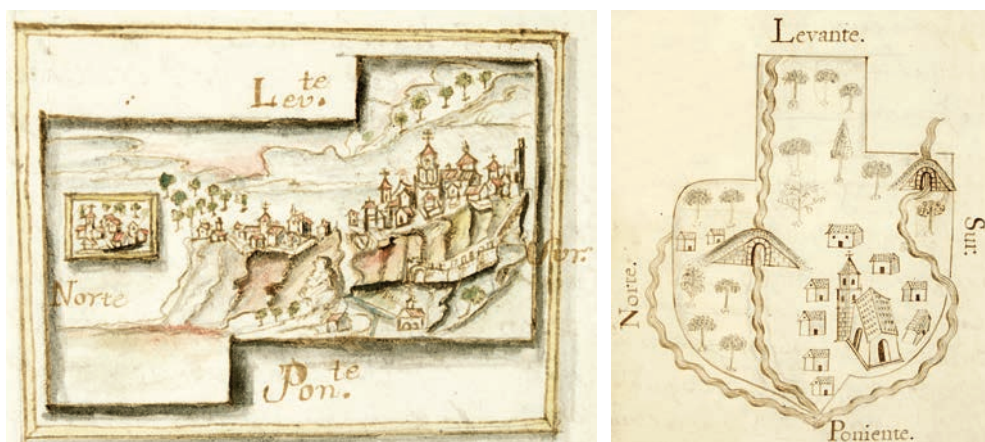 Lev.te
Norte
Sur.
Pon.te
Levante.
Norte.
Sur.
Poniente.